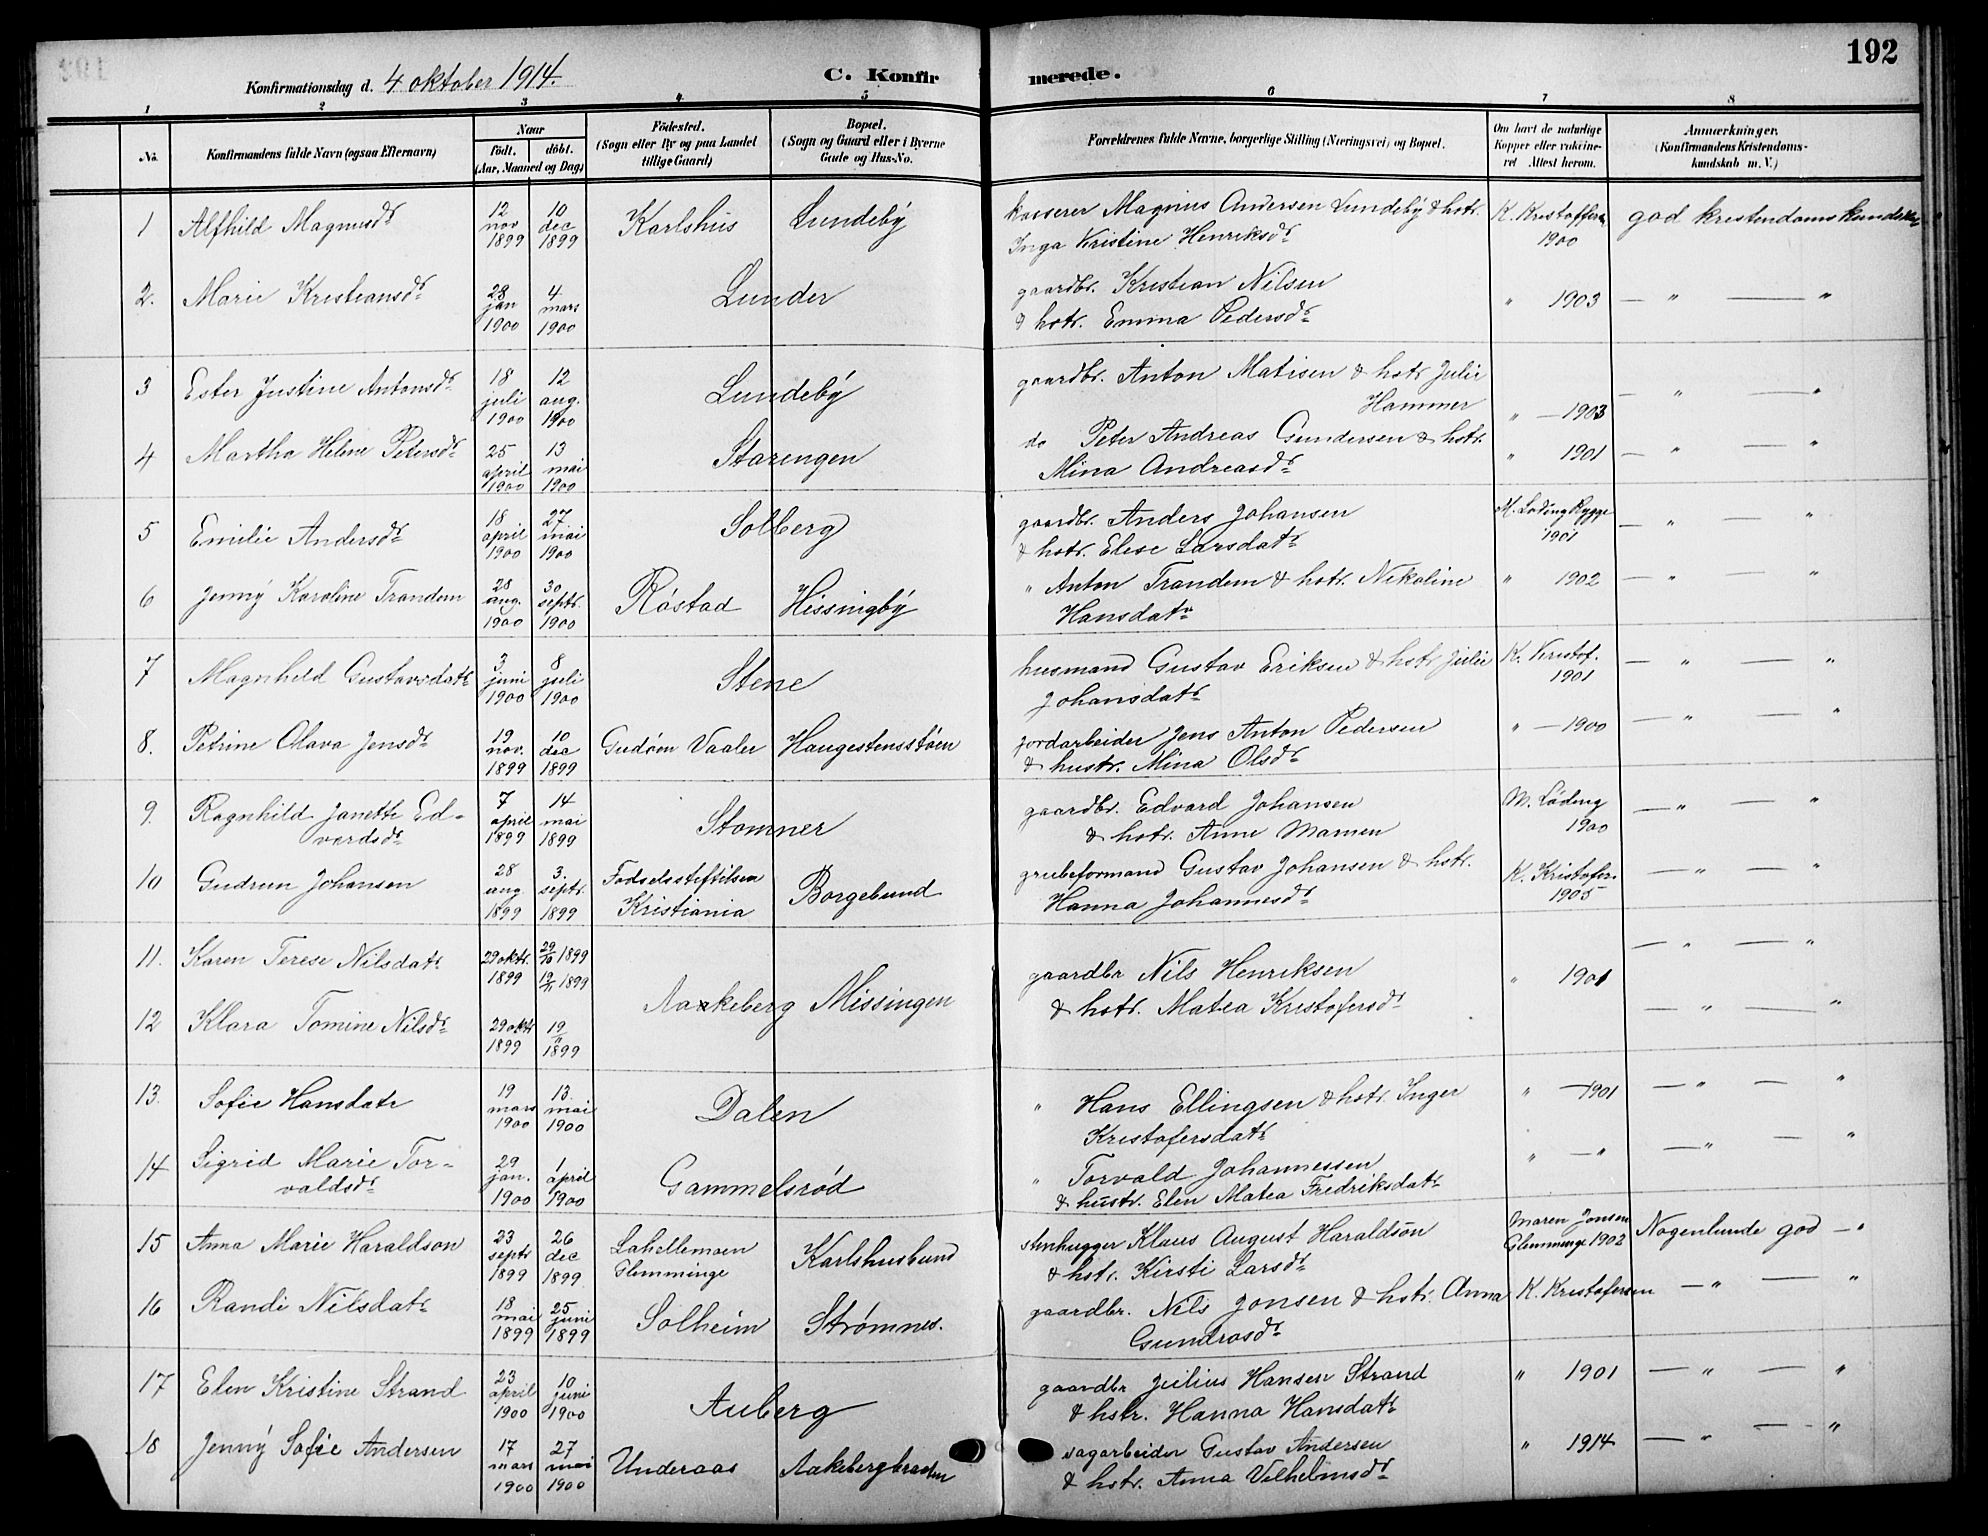 192
Konfirmationsdag d. 4 oktober 1914.
C. Konfirmerede.
1 2 3 4 5 6 7 8
No.
Konfirmandens fulde Navn (ogsaa Efternavn)
Naar
födt. döbt.
(Aar, Maaned og Dag)
Födested.
(Sogn eller By og paa Landet
tillige Gaard)
Bopæl.
(Sogn og Gaard eller i Byerne
Gade og Hus-No.
Forældrenes fulde Navne, borgerlige Stilling (Næringsvei) og Bopæl.
Om havt de naturlige
Kopper eller vakcine-
ret Attest herom.
Anmærkninger.
(Konfirmandens Kristendoms-
kundskab m. V.)
1 Alfhild Magnusdr 12 nov 1899 10 dec 1899 Karlshus Lundeby kasserer Magnus Andersen Lundeby & hstr.
Inga Kristine Henriksdr K. Kristoffersen 1900 god kristendomskundskab
2. Marie Kristiansdr 28 jan 1900 4. mars 1900 Lunder gaardbr. Kristian Nilsen
& hstr. Emma Pedersdr " 1903 — " — "
3 Ester Justine Antonsdr 18 juli 1900 12 aug. 1900 Lundeby gaardbr. Anton Matisen & hstr Julie
Hammer " — 1903 — " — "
4 Martha Helene Petersdr 25 april 1900 13 mai 1900 Starengen do Peter Andreas Gundersen & hstr.
Mina Andreasdr " 1901 — " — "
5 Emilie Andersdr 18 april 1900 27 mai 1900 Solberg gaardbr. Anders Johansen
& hstr. Elise Larsdatr M. Löding Rygge 1901 — " — "
6 Jenny Karoline Trandem 28 aug. 1900 30 septr. 1900 Röstad Hissingby " Anton Trandem & hstr. Nikoline
Hansdatr " 1902 — " — "
7 Magnhild Gustavsdatr 3 juni 1900 8 juli 1900 Stene husmand Gustav Eriksen & hstr Julie
Johansdatr K. Kristof. 1901 — " — "
8. Petrine Olava Jensdr 19 nov. 1899 10 dec 1899 Gudöen Vaaler Haugestensstöen jordarbeider Jens Anton Pedersen
& hustr. Mina Olsdr " — 1900 — " — "
9. Ragnhild Janette Ed-
vardsdr 7 april 1899 14 mai 1899 Stomner gaardbr. Edvard Johansen
& hstr. Anne Mamen M. Löding 1900 — " — "
10 Gudrun Johansen 28 aug 1899 3. septr. 1899 Fodselsstiftelsen
Kristiania Borgebund grubeformand Gustav Johansen & hstr.
Hanna Johannesdr K. Kristofer. 1905 — " — "
11. Karen Terese Nilsdatr 29 oktr. 1899 29/10 1899 19/11 1899 Aakeberg Missingen gaardbr Nils Henriksen
& hstr. Matea Kristofersdr " 1901 — " — "
12 Klara Tomine Nilsdr 29 oktr 1899 19/11 1899 — " — "
13. Sofie Hansdatr 19 mars 1900 13. mai 1900 Dalen " Hans Ellingsen & hstr. Inger
Kristofersdatr " — 1901 — " — "
14 Sigrid Marie Tor-
valdsdr 29 jan. 1900 1 april 1900 Gammelsröd " Torvald Johannessen
& hustr. Elen Matea Fredriksdatr " — " — " — "
15 Anna Marie Haraldson 23 septr 1899 26 dec 1899 Lahellemoen
Glemminge Karlshusbund stenhugger Klaus August Haraldson
& hstr. Kirsti Larsdr Maren Jonsen
Glemminge 1902 Nogenlunde god — "
16 Randi Nilsdatr 18 mai 1899 25 juni 1899 Solheim Strømnes. gaardbr. Nils Jonsen & hstr. Anna
Gundrosdr K. Kristofersen — " — "
17 Elen Kristine Strand 23 april 1900 10 juni 1900 Auberg gaardbr Julius Hansen Strand
& hstr. Hanna Hansdatr " 1901 — " — "
18 Jenny Sofie Andersen 17 mars 1900 27 mai 1900 Underaas Aakebergbraaten sagarbeider Gustav Andersen
& hstr. Anna Vilhelmsdr " 1914 — " — "